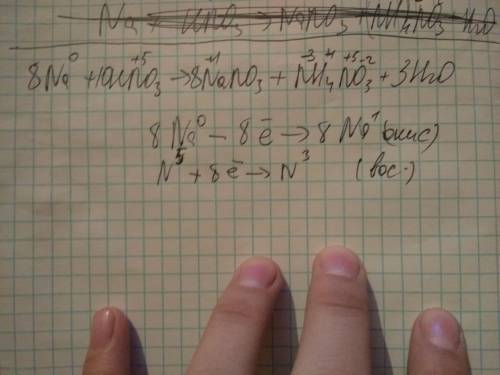 Na + HNO3 → NaNO3 + NH4NO3 H2O
8Na⁰ + 10HN⁺⁵O3 → 8Na⁺¹NO3 + N⁻³H4⁺N⁺⁵O3⁻² + 3H2O
8 Na⁰ – 8ē → 8 Na¹ (окис)
N⁵ + 8ē → N³ (вос.)